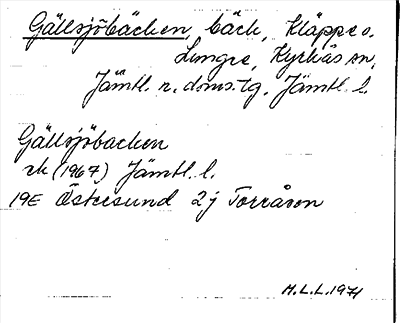 Gällsjöbäcken, bäck, Kläppe o.
Lungre, Kyrkås sn,
Jämtl. n. doms.tg. Jämtl. l.
Gällsjöbacken
rk (1967) Jämtl. l.
19E Östersund 2j Torråsen
M.L.L. 1971